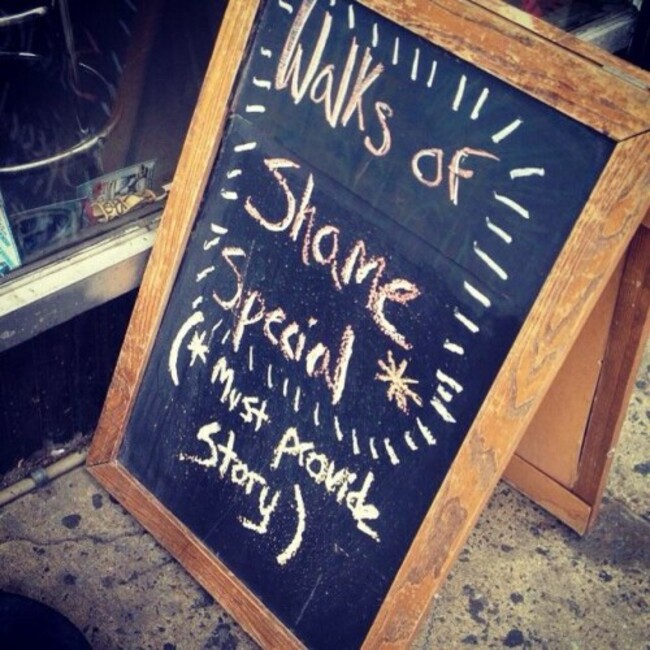 Walks of
Shame
Special *
(* Must provide
Story)